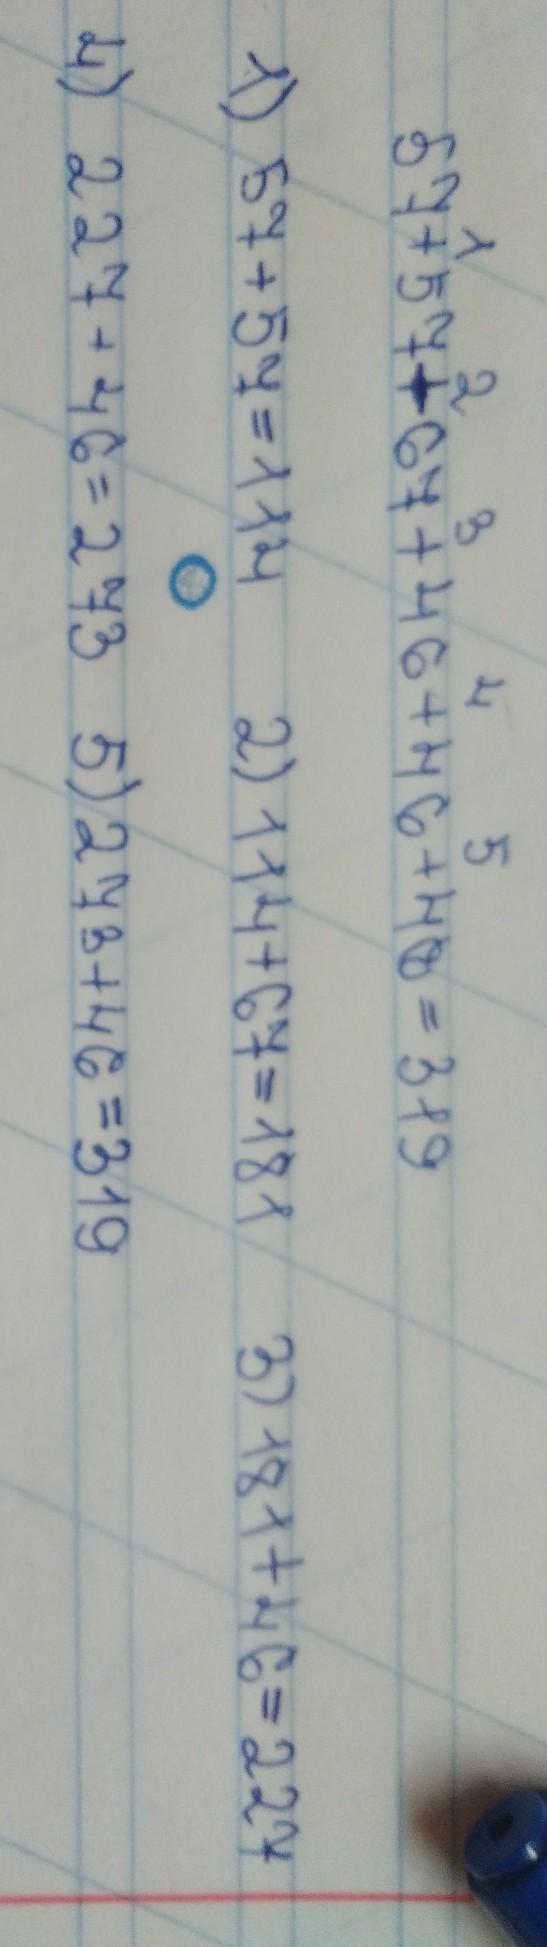 1 2 3 4 5
57+57+67+46+46+46=319
1) 57+57=114 2) 114+67=181 3) 181+46=227
4) 227+46=273 5) 273+46=319